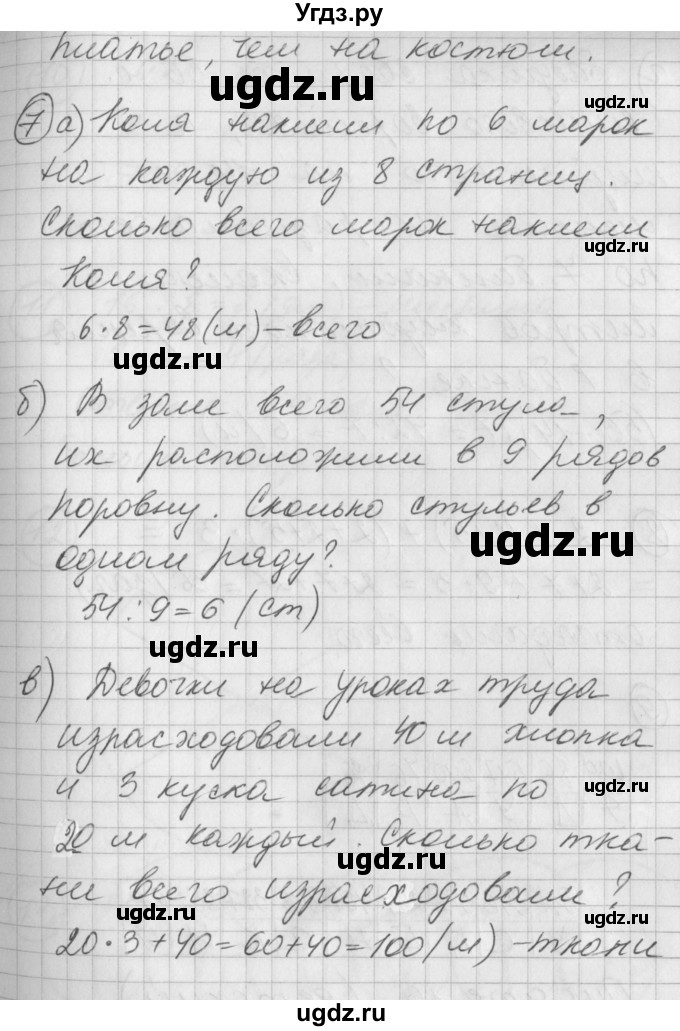 Угдз.ру
платье, чем на костюм.
ugdz.ru
ugdz.ru
7 а) Коля наклеил по 6 марок
на каждую из 8 страниц.
ugdz.ru
Сколько всего марок наклеил
ugdz.ru
Коля?
6·8=48(м)-всего
ugdz.ru
ugdz.ru
б) В зале всего 54 стула,
ugdz.ru
их расположили в 9 рядов
поровну. Сколько стульев в
ugdz.ru
одном ряду?
54:9=6 (ст)
ugdz.ru
ugdz.ru
в) Девочки на уроках труда
израсходовали 40 м хлопка
ugdz.ru
и 3 куска сатина по
20 м каждый. Сколько тка-
ugdz.ru
ни всего израсходовали?
ugdz.ru
20·3+40=60+40=100(м)-ткани
ugdz.ru
ugdz.ru